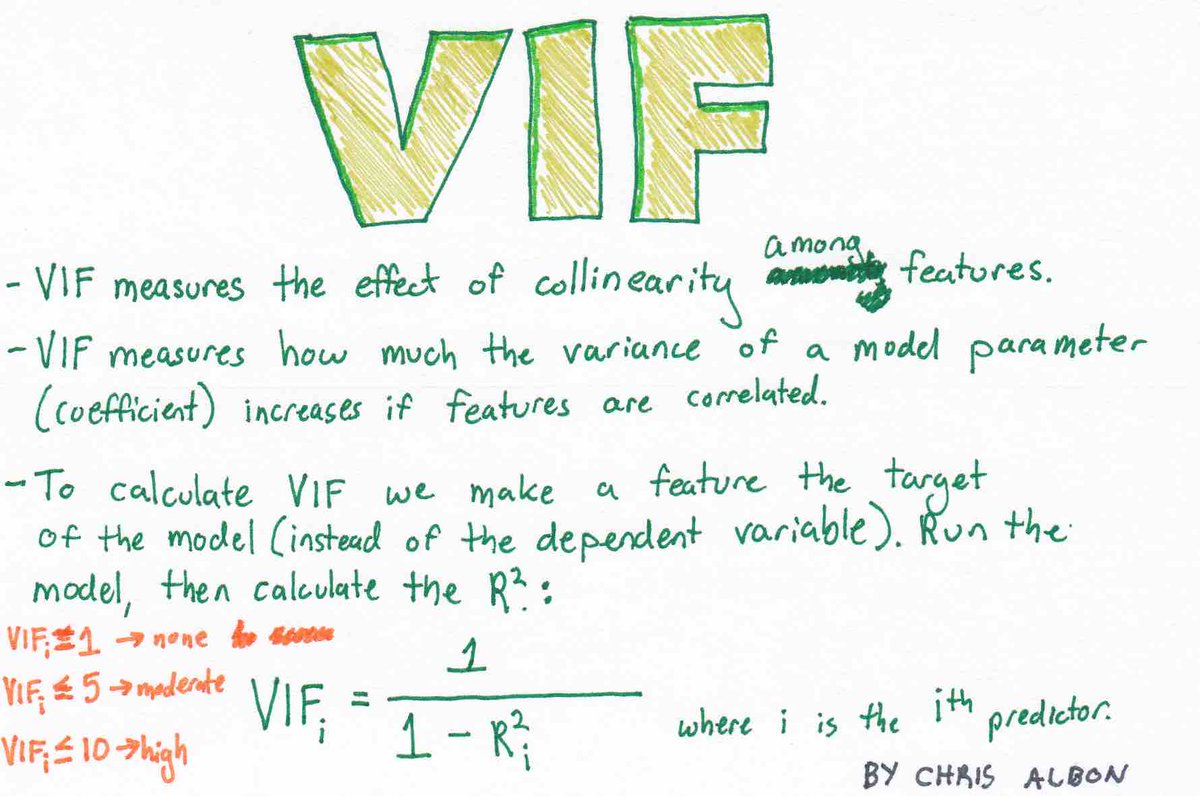 VIF
- VIF measures the effect of collinearity among features.
- VIF measures how much the variance of a model parameter
(coefficient) increases if features are correlated.
- To calculate VIF we make a feature the target
of the model (instead of the dependent variable). Run the
model, then calculate the R²:
VIFᵢ = 1 → none
VIFᵢ ≤ 5 → moderate
VIFᵢ ≤ 10 → high
VIFᵢ = 1 / (1 - Rᵢ²) where i is the iᵗʰ predictor.
BY CHRIS ALBON